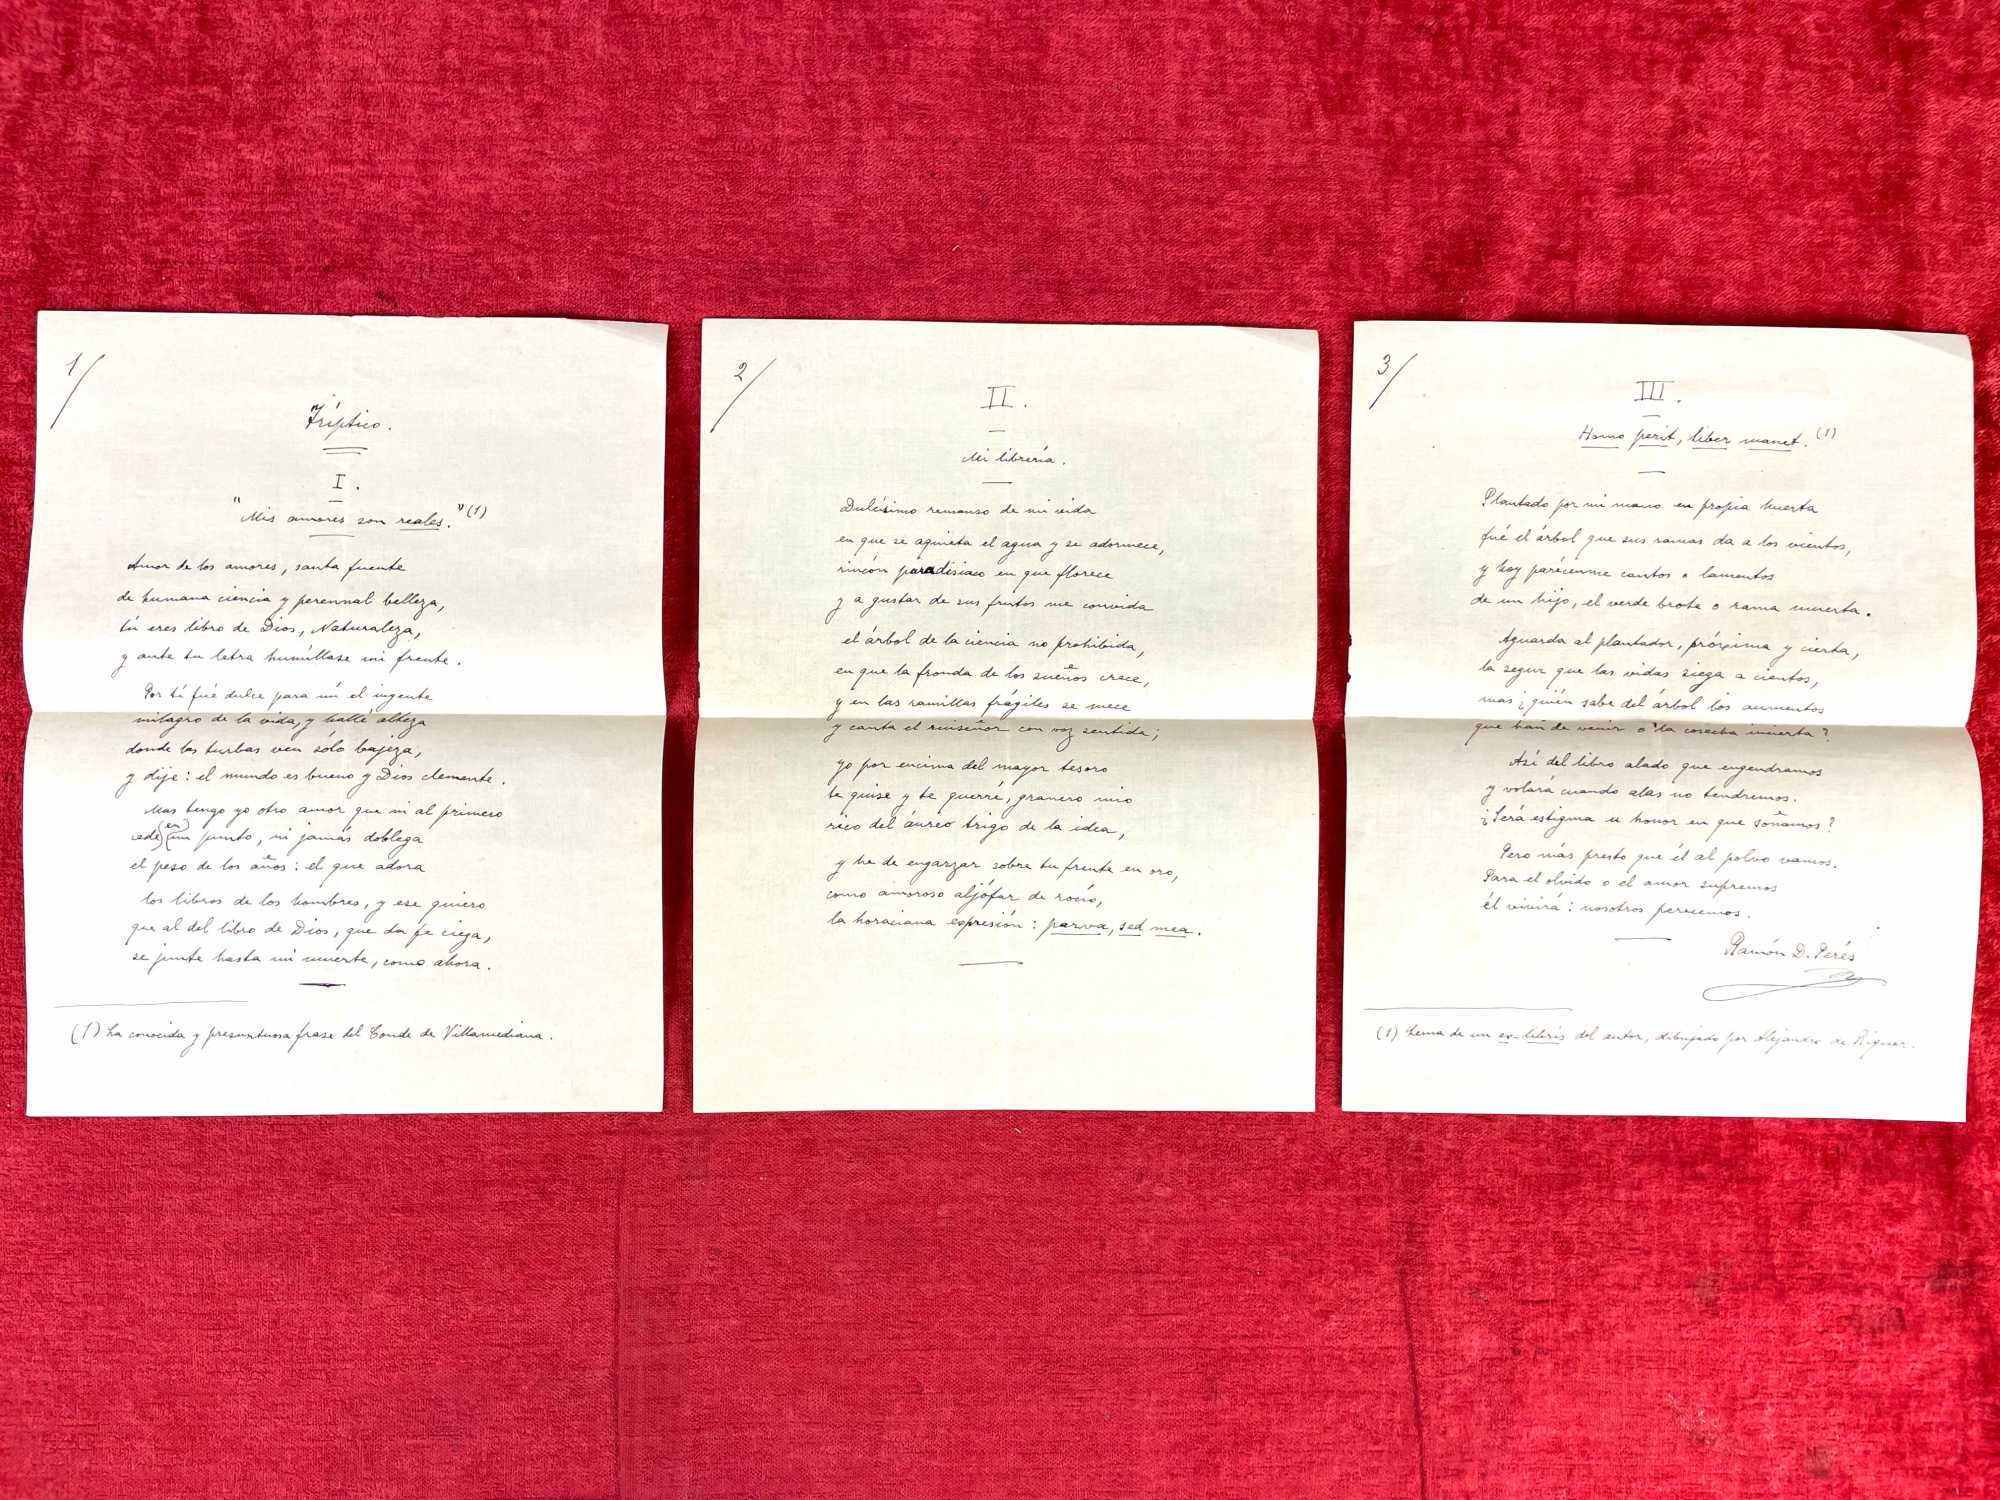 1/
Tríptico.
I.
"Mis amores son reales." (1)
Amor de los amores, santa fuente
de humana ciencia y perennal belleza,
tú eres libro de Dios, Naturaleza,
y ante tu letra humíllase mi frente.
Por tí fué dulce para mí el ingente
milagro de la vida, y hallé alteza
donde las turbas ven sólo bajeza,
y dije: el mundo es bueno y Dios clemente.
Mas tengo yo otro amor que ni al primero
cede (en) un punto, ni jamás doblega
el peso de los años: el que adora
los libros de los hombres, y ese quiero
que al del libro de Dios, que da fe ciega,
se junte hasta mi muerte, como ahora.
(1) La conocida y presuntuosa frase del Conde de Villamediana.
2/
II.
Mi librería.
Dulcísimo remanso de mi vida
en que se aquieta el agua y se adormece,
rincón paradisiaco en que florece
y a gustar de sus frutos me convida
el árbol de la ciencia no prohibida,
en que la fronda de los sueños crece,
y en las ramillas frágiles se mece
y canta el ruiseñor con voz sentida;
yo por encima del mayor tesoro
te quise y te querré, granero mío
rico del áureo trigo de la idea,
y he de engarzar sobre tu frente en oro,
como amoroso aljófar de rocío,
la horaciana expresión: parva, sed mea.
3/
III.
Homo perit, liber manet. (1)
Plantado por mi mano en propia huerta
fué el árbol que sus ramas da a los vientos,
y hoy parécenme cantos o lamentos
de un hijo, el verde brote o rama muerta.
Aguarda al plantador, próxima y cierta,
la segur que las vidas siega a cientos,
mas ¿quién sabe del árbol los aumentos
que han de venir o la cosecha incierta?
Así del libro alado que engendramos
y volará cuando alas no tendremos.
¿Será estigma u honor en que soñamos?
Pero más presto que él al polvo vamos.
Para el olvido o el amor supremos
él vivirá: nosotros perecemos.
Ramón D. Perés
(1) Lema de un ex-libris del autor, dibujado por Alejandro de Riquer.